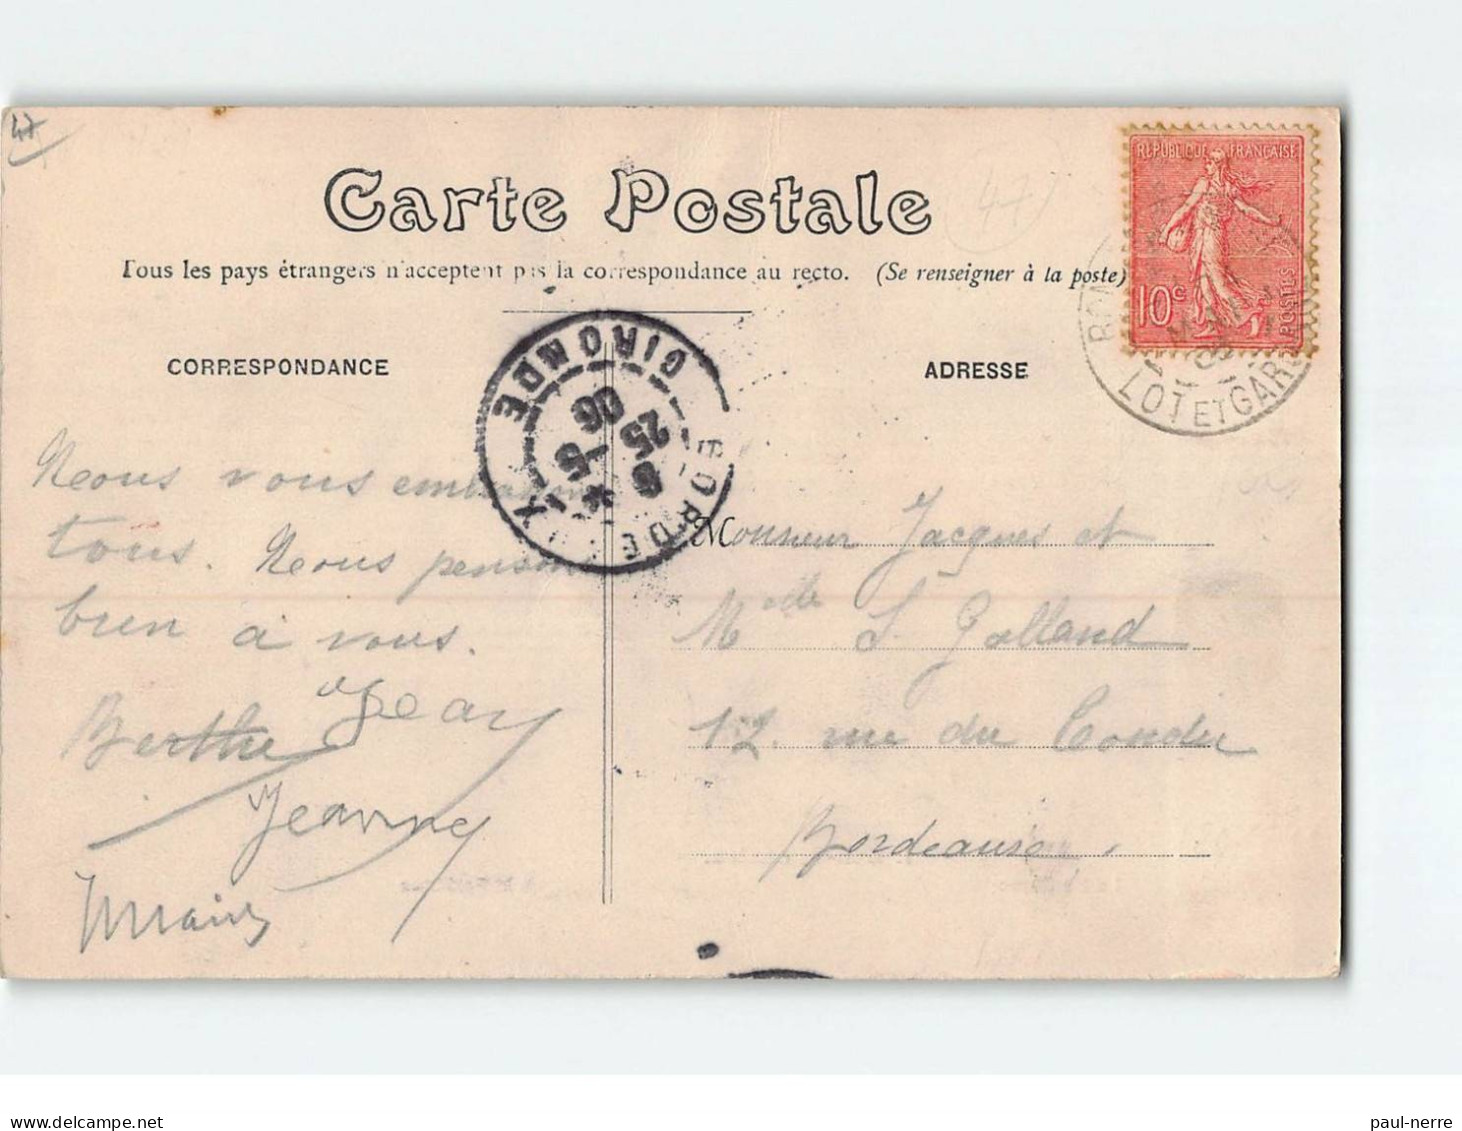 47
Carte Postale
47
Tous les pays étrangers n'acceptent pas la correspondance au recto. (Se renseigner à la poste)
REPUBLIQUE FRANÇAISE
10c
POSTES
LOT ET GAR
CORRESPONDANCE
ADRESSE
BORDEAUX
GIRONDE
8
25 -5
06
Nous vous embrassons
tous. Nous pensons
bien à vous.
Jean
Berthe
Jeanne
Monsieur Jacques et
Melle S. Galland
12 rue du Condu
Bordeaux.
paul-nerre